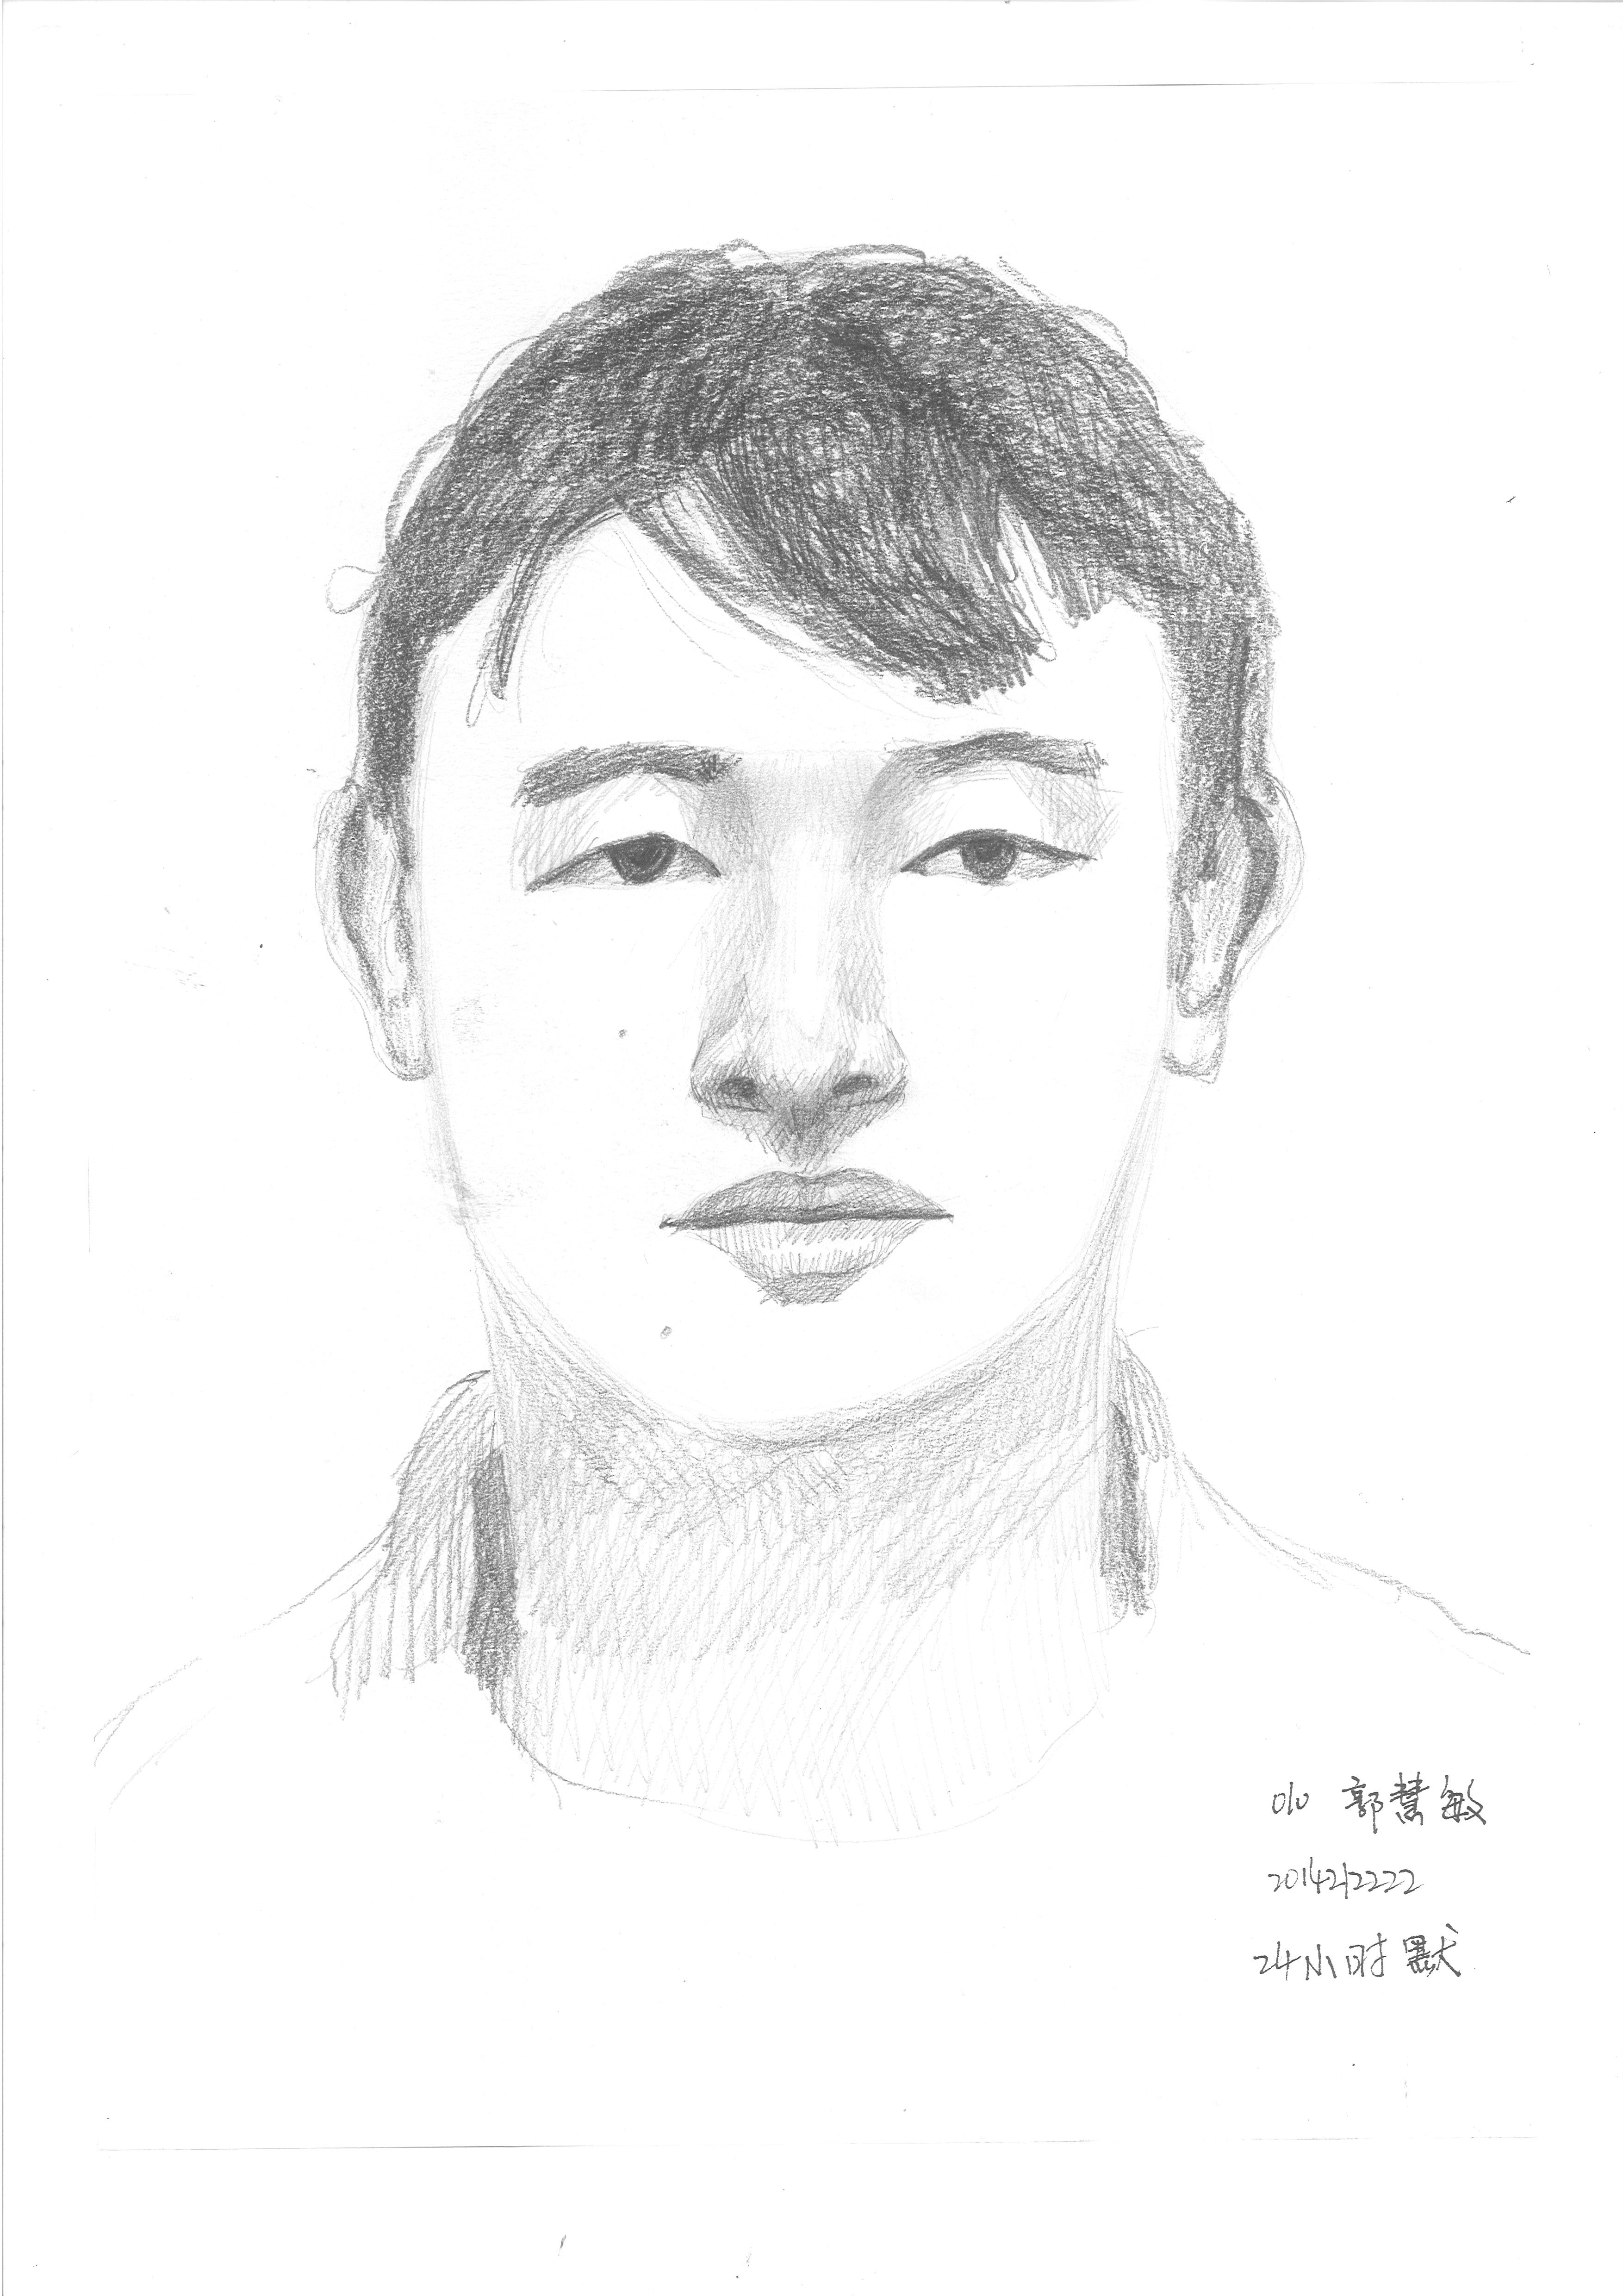 010 郭慧敏
2014212222
24小时默